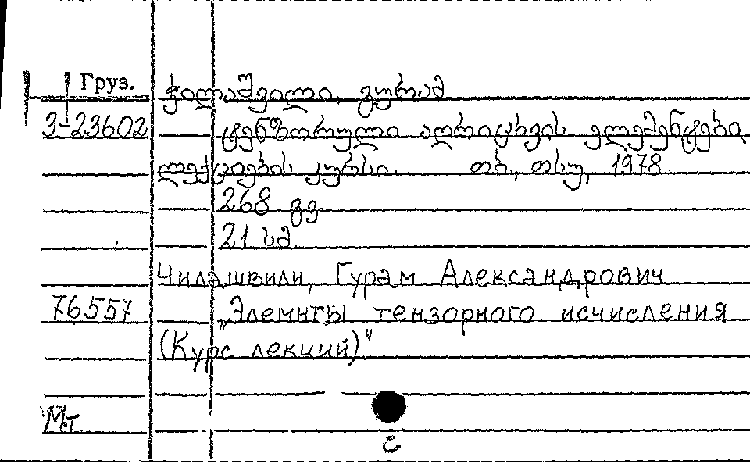 Груз. ჭილაშვილი, გურამ
3-23602 ტენზორული აღრიცხვის ელემენტები
ლექციების კურსი. თბ., თსუ, 1978
268 გვ
21 სმ.
Чилашвили, Гурам Александрович
76557 „Элемнты тензорного исчисления
(Курс лекций)"
Мт